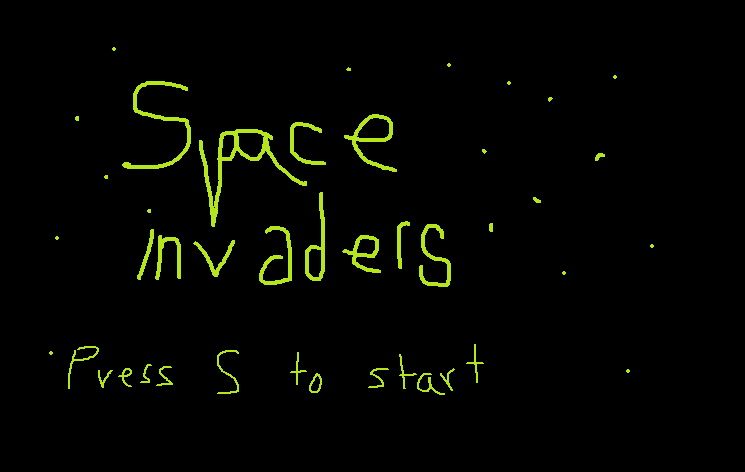 Space
invaders
Press S to start